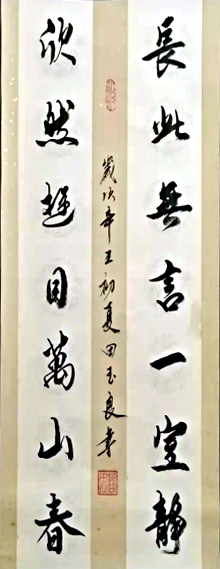 長此無言一室静
欣然遊目萬山春
歲次辛丑初夏田玉良書